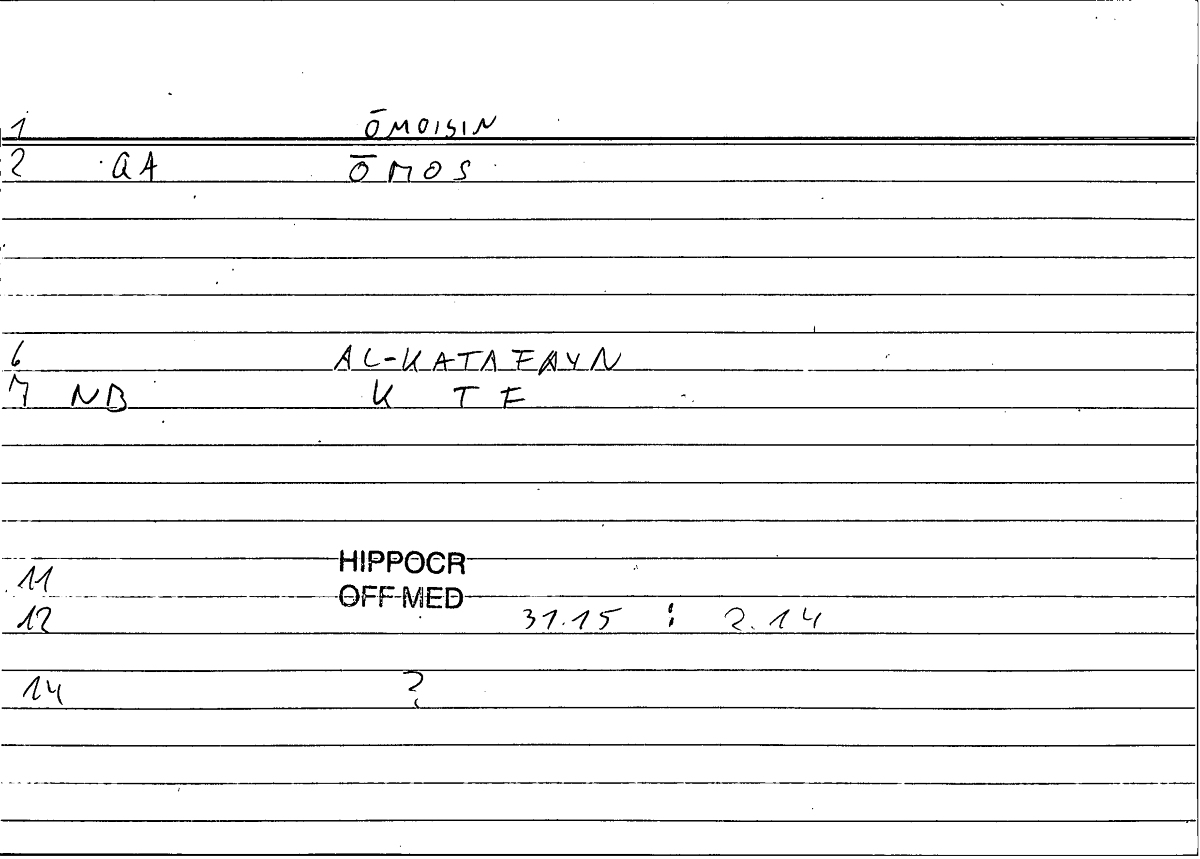 1 ŌMOISIN
2 QA ŌMOS
6 AL-KATAFAYN
7 NB K T F
HIPPOCR
11
OFF MED
12 31.15 : 2.14
14 ?